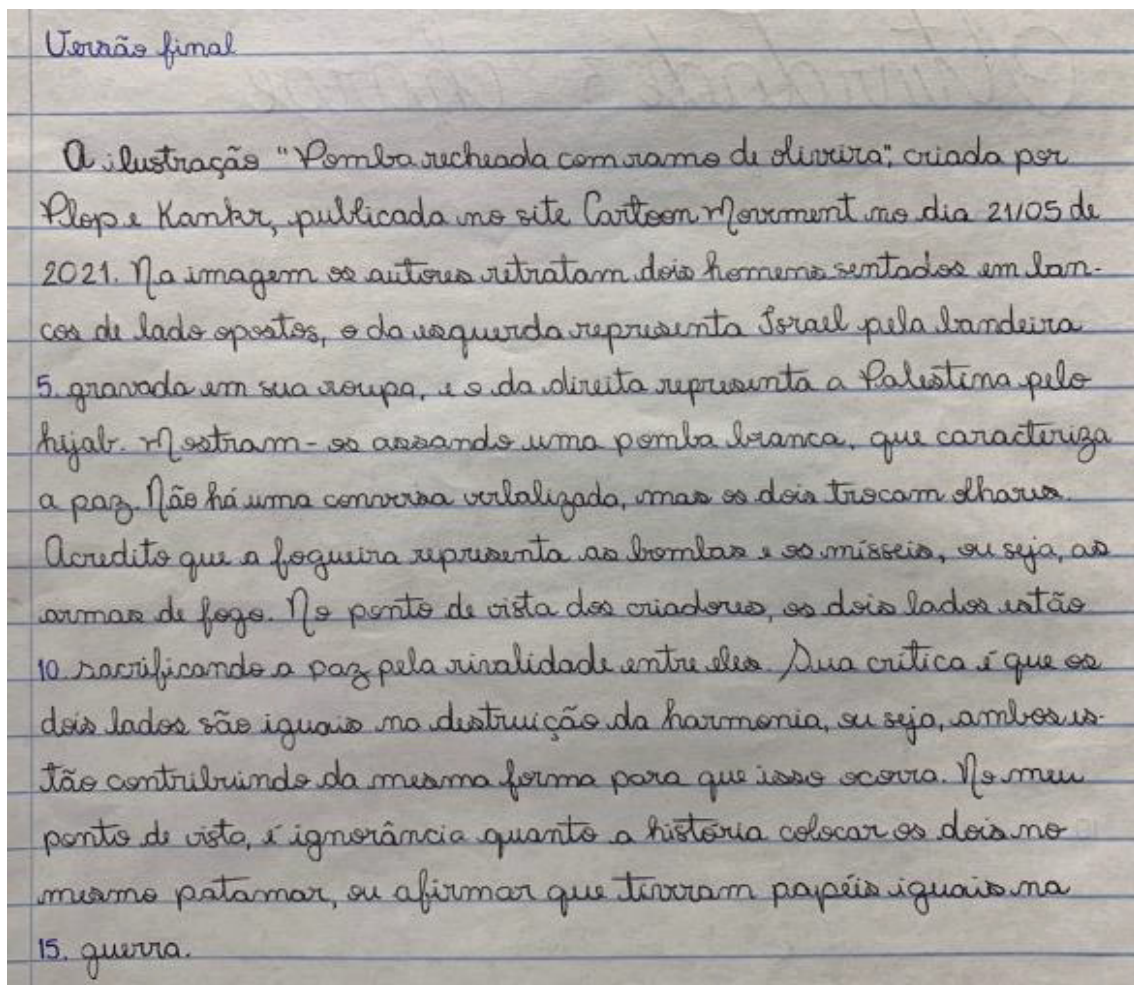 Versão final
A ilustração "Pomba recheada com ramo de oliveira", criada por
Plop e Kankr, publicada no site Cartoon Movement no dia 21/05 de
2021. Na imagem os autores retratam dois homens sentados em ban-
cos de lado opostos, o da esquerda representa Israel pela bandeira
5. gravada em sua roupa, e o da direita representa a Palestina pelo
hijab. Mostram-os assando uma pomba branca, que caracteriza
a paz. Não há uma conversa verbalizada, mas os dois trocam olhares.
Acredito que a fogueira representa as bombas e os mísseis, ou seja, as
armas de fogo. No ponto de vista dos criadores, os dois lados estão
10. sacrificando a paz pela rivalidade entre eles. Sua crítica é que os
dois lados são iguais na destruição da harmonia, ou seja, ambos es-
tão contribuindo da mesma forma para que isso ocorra. No meu
ponto de vista, é ignorância quanto a história colocar os dois no
mesmo patamar, ou afirmar que tiveram papéis iguais na
15. guerra.